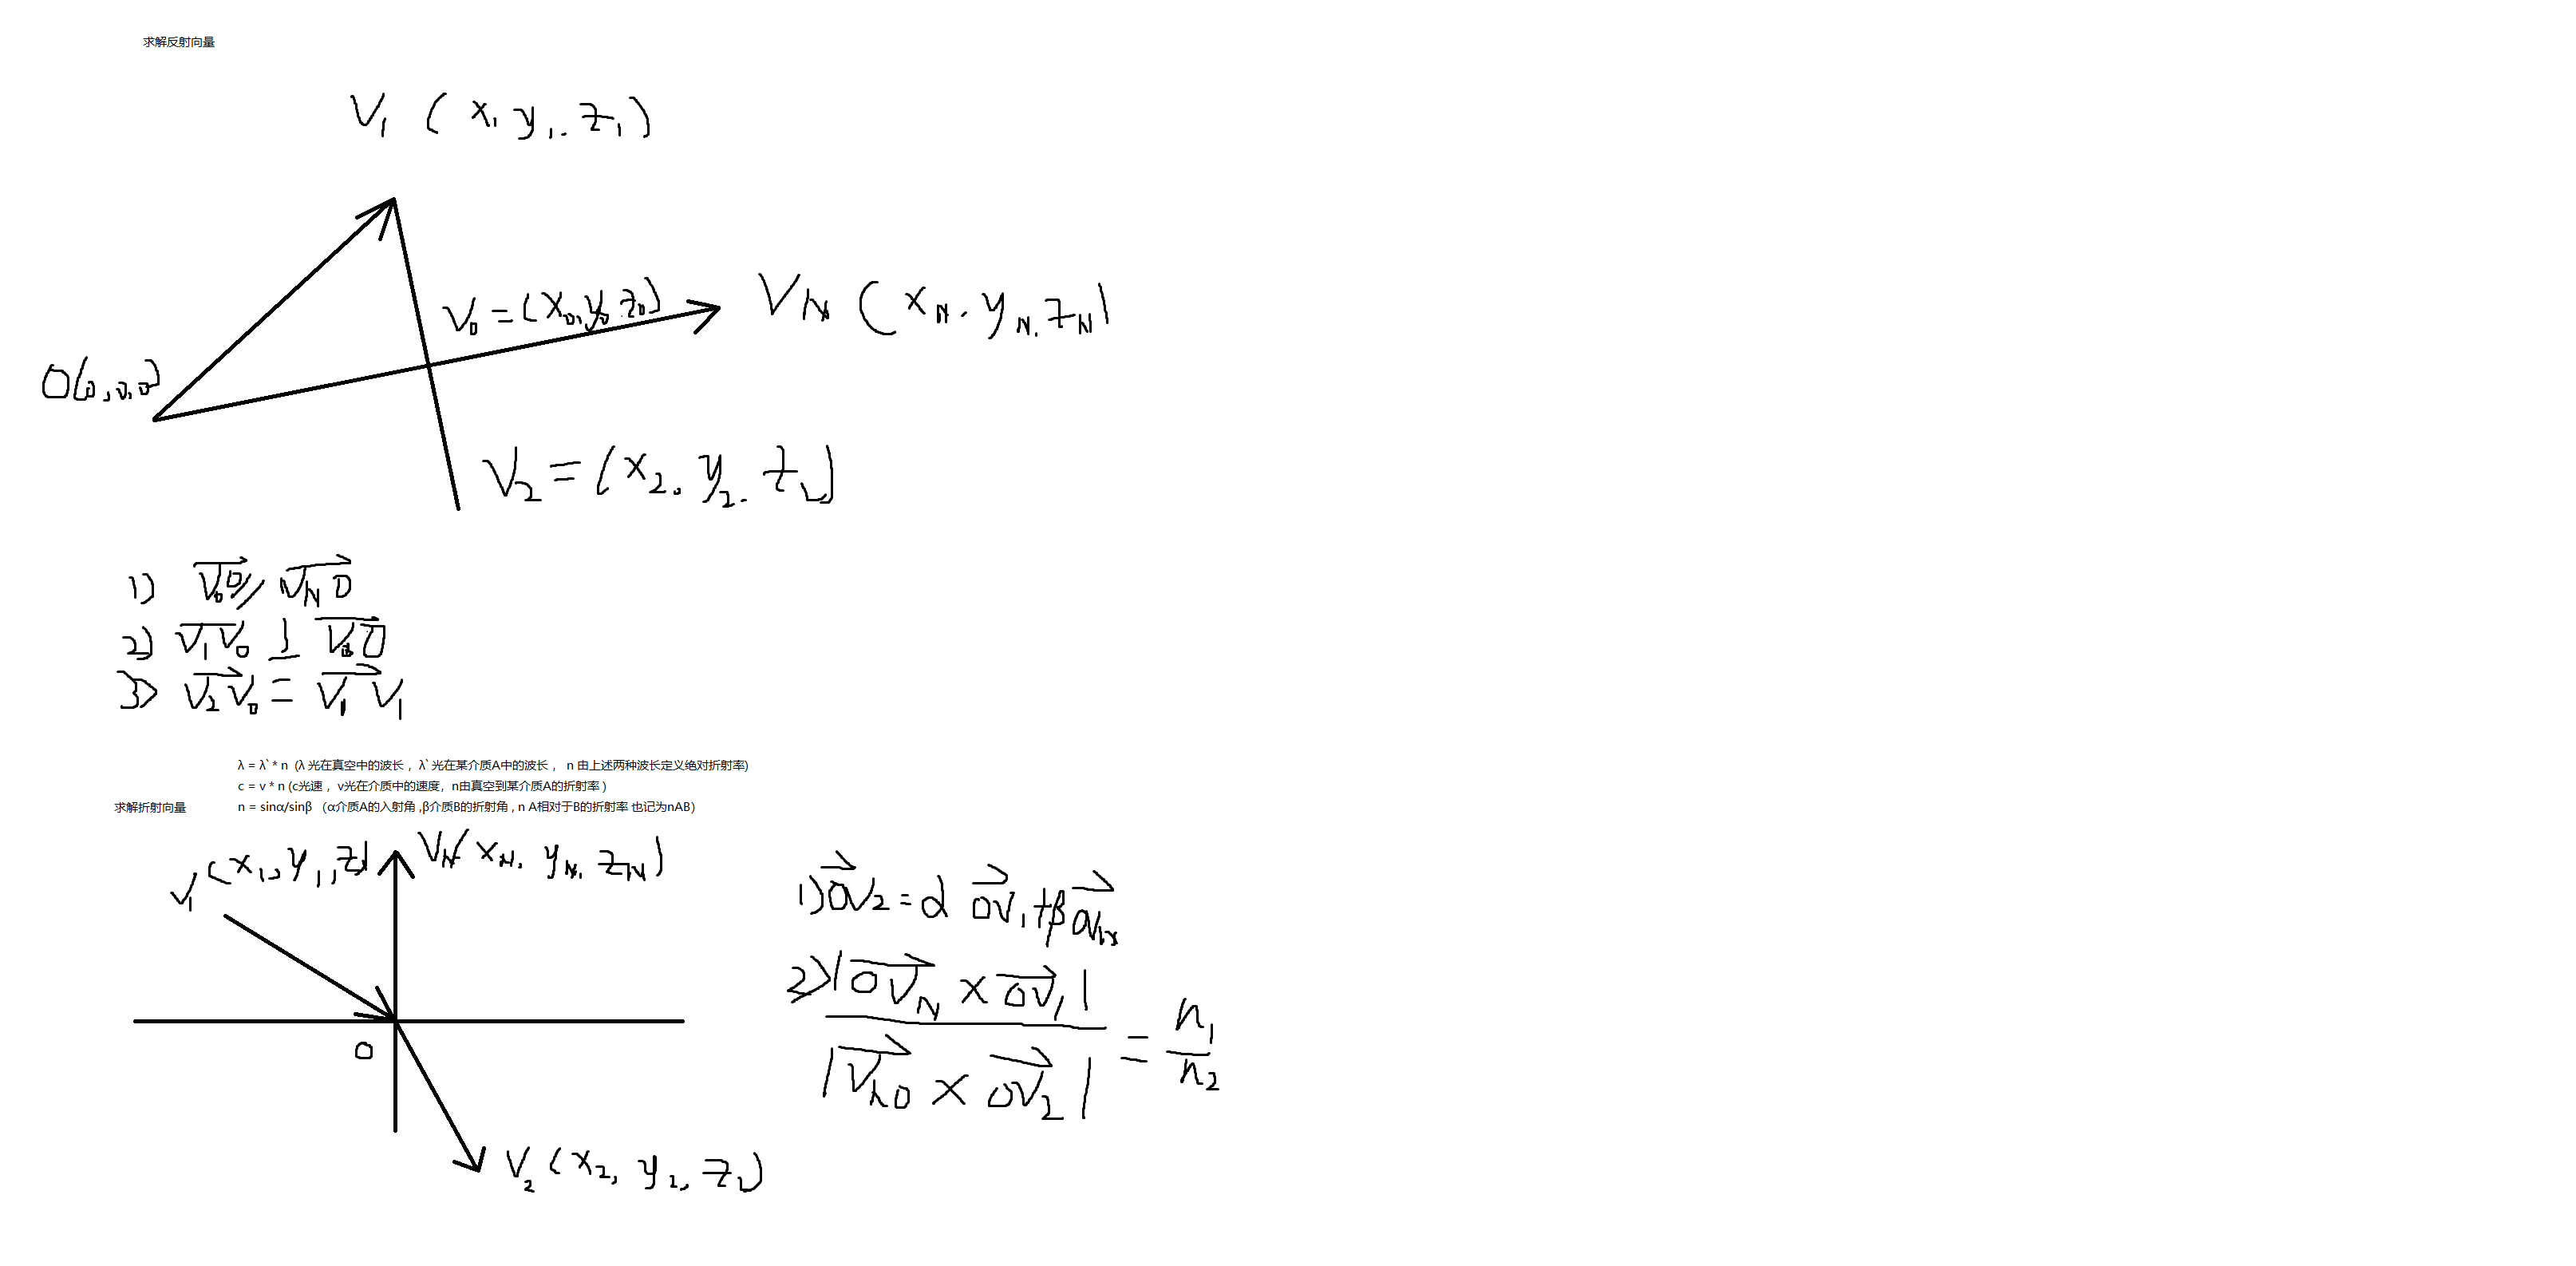 求解反射向量
V₁ ( x₁ y₁. z₁ )
V₀ = (x₀, y₀ z₀)
V_N ( x_N. y_N. z_N )
O(0,0,0)
V₂ = (x₂. y₂. z₂)
1) V₀O // V_NO
2) V₁V₀ ⊥ V₀O
3) V₂V₀ = V₁V₁
λ = λ` * n (λ 光在真空中的波长 , λ` 光在某介质A中的波长 , n 由上述两种波长定义绝对折射率)
c = v * n (c光速 , v光在介质中的速度, n由真空到某介质A的折射率 )
求解折射向量
n = sinα/sinβ (α介质A的入射角 ,β介质B的折射角 , n A相对于B的折射率 也记为nAB)
V₁ (x₁, y₁, z₁)
V_N( x_N, y_N, z_N )
O
V₂ (x₂, y₂, z₂)
1) OV₂ = α OV₁ + β OV_N
2) |OV_N × OV₁|
|V_NO × OV₂|
= n₁ / n₂